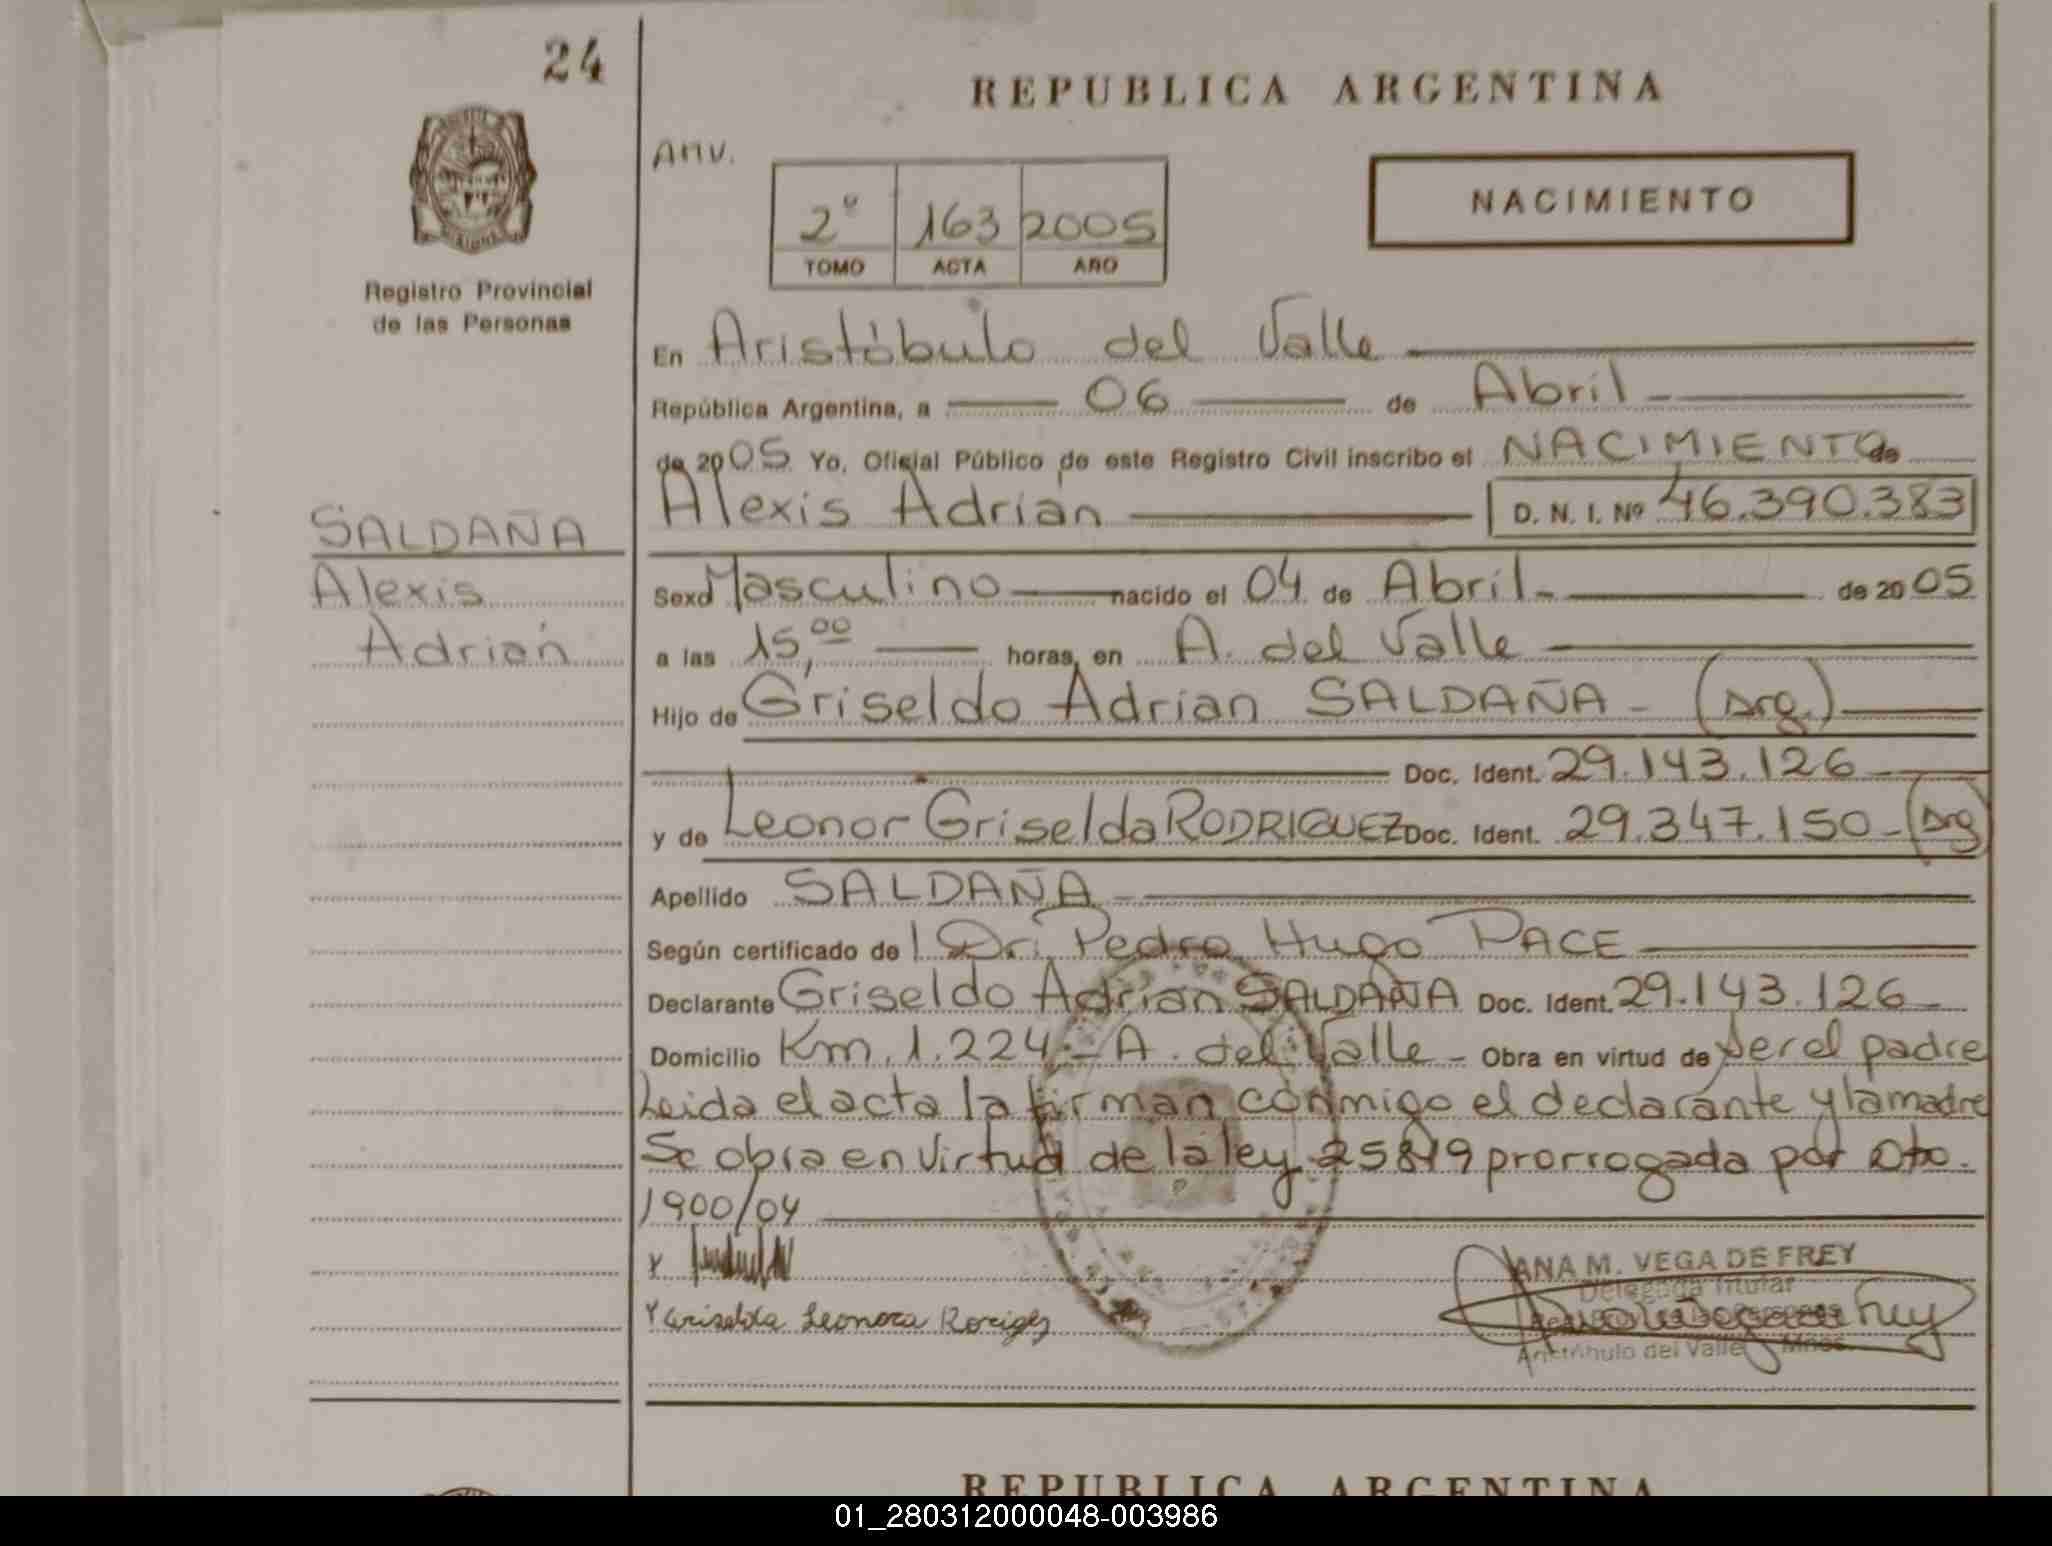 24
REPUBLICA ARGENTINA
AMV.
2º 163 2005
TOMO ACTA AÑO
NACIMIENTO
Registro Provincial
de las Personas
En Aristóbulo del Valle
República Argentina, a 06 de Abril
de 2005 Yo, Oficial Público de este Registro Civil inscribo el NACIMIENTO de
Alexis Adrián D. N. I. Nº 46.390.383
SALDAÑA
Alexis
Adrián
Sexo Masculino nacido el 04 de Abril de 2005
a las 15,00 horas, en A. del Valle
Hijo de Griseldo Adrian SALDAÑA - (Arg.)
Doc. Ident. 29.143.126
y de Leonor Griselda RODRIGUEZ Doc. Ident. 29.347.150 - (Arg
Apellido SALDAÑA
Según certificado del Dr. Pedro Hugo PACE
Declarante Griseldo Adrian SALDAÑA Doc. Ident. 29.143.126
Domicilio Km. 1.224 - A. del Valle - Obra en virtud de ser el padre
Leida el acta la firman conmigo el declarante y la madre
Se obra en virtud de la ley 25819 prorrogada por Dto.
1900/04
X
Y Griselda Leonora
ANA M. VEGA DE FREY
Delegada Titular
Aristóbulo del Valle Mnes.
REPUBLICA ARGENTINA
01_280312000048-003986